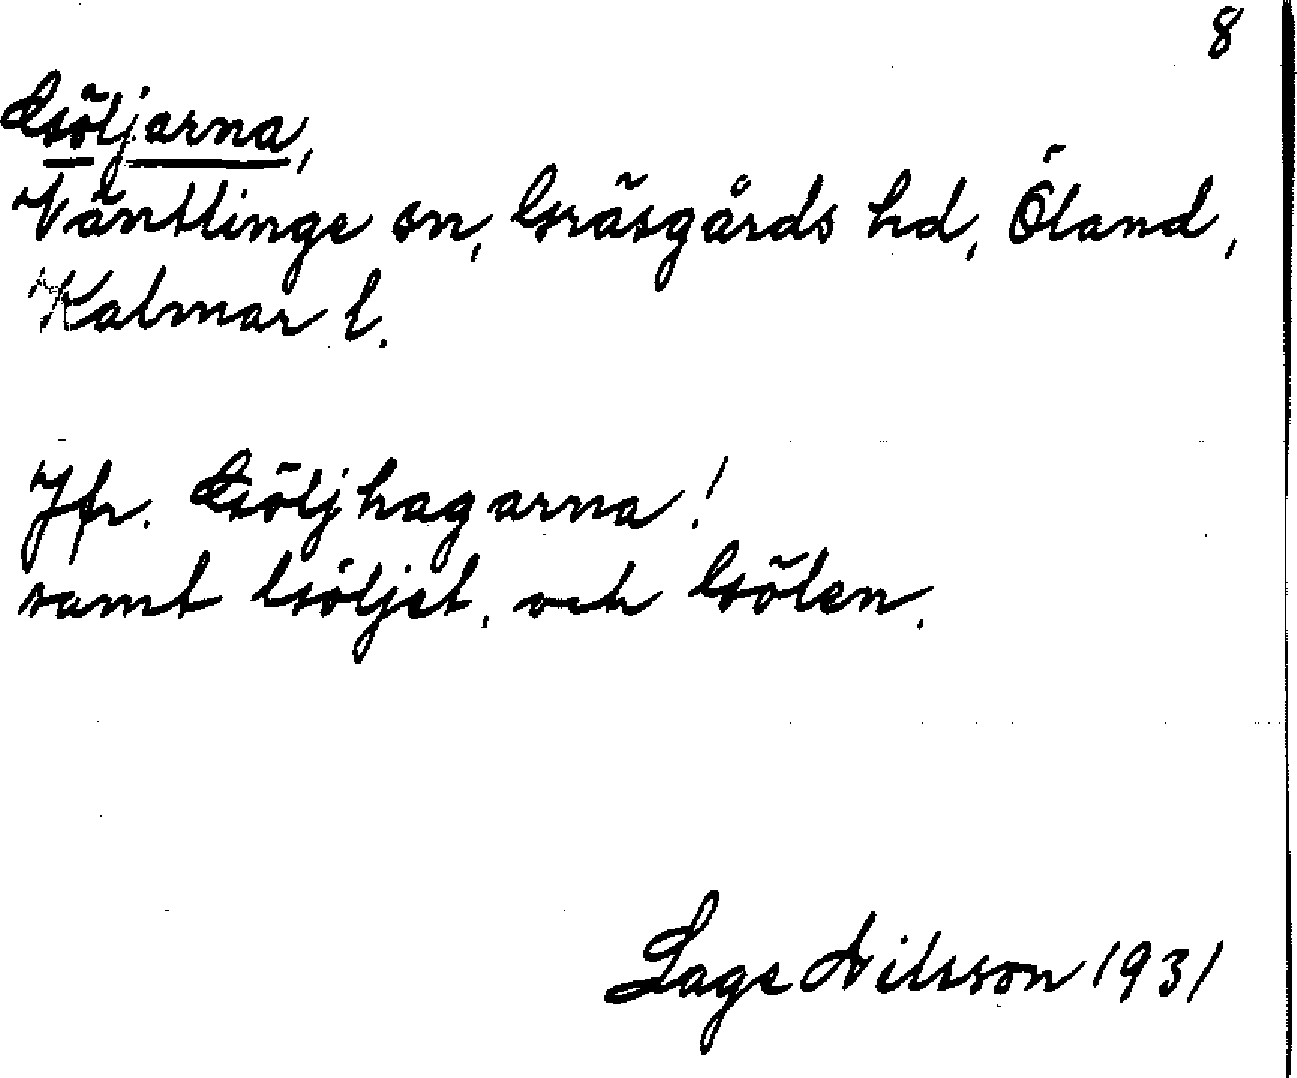 8
Göljarna,
Väntlinge sn, Gräsgårds hd, Öland,
Kalmar l.
Jfr. Göljhagarna!
samt Göljet, och Gölen.
Lage Nilsson 1931